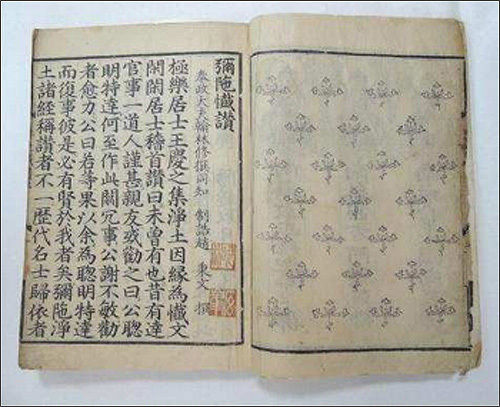 彌陁懺讃
奉政大夫翰林修撰同知 制誥趙 秉文 撰
極樂居士王慶之集淨土因縁為懺文
閑閑居士稽首讃曰未曾有也昔有達
官事一道人謹甚親友或勸之曰公聦
明特達何至作此闒冗事公謝不敏勸
者愈力公曰若等果以余為聦明特達
而復事彼是必有賢於我者矣彌陁淨
土諸經稱讃者不一歷代名士歸依者